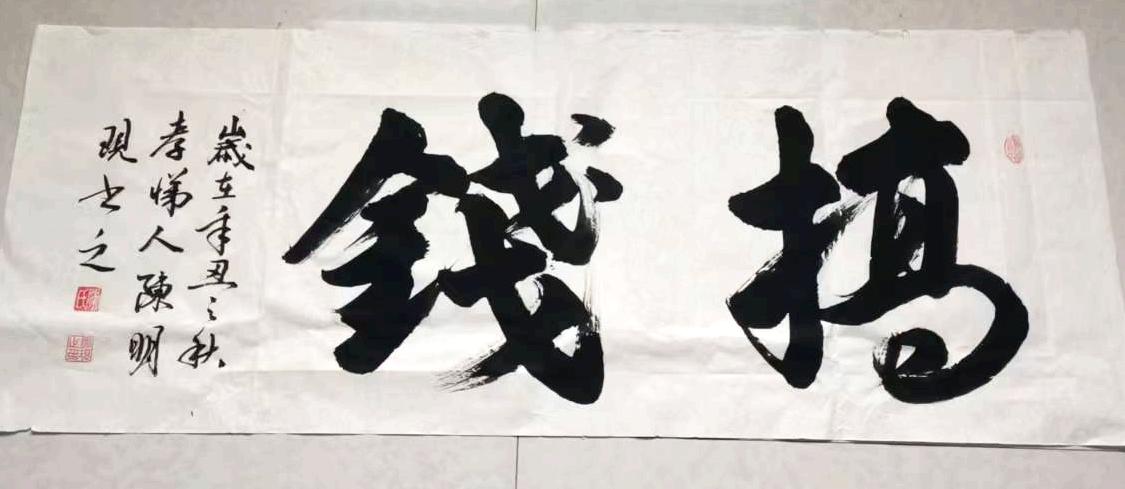 搞錢
歲在辛丑之秋
孝悌人陳明
現书之